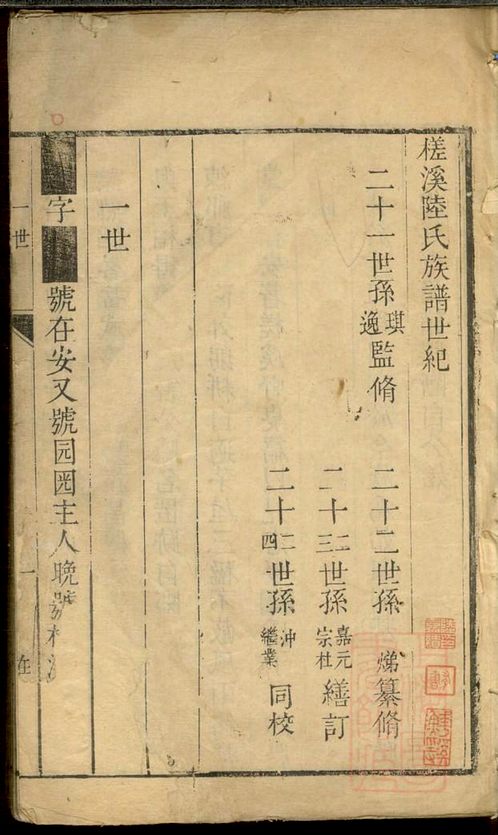 槎溪陸氏族譜世紀
二十一世孫 琪 逸 監脩
二十二世孫 焍 纂脩
二十二三世孫 嘉元 宗杜 繕訂
二十二四世孫 沖 繼業 同校
一世
字 號在安又號园囦主人晚號
一世